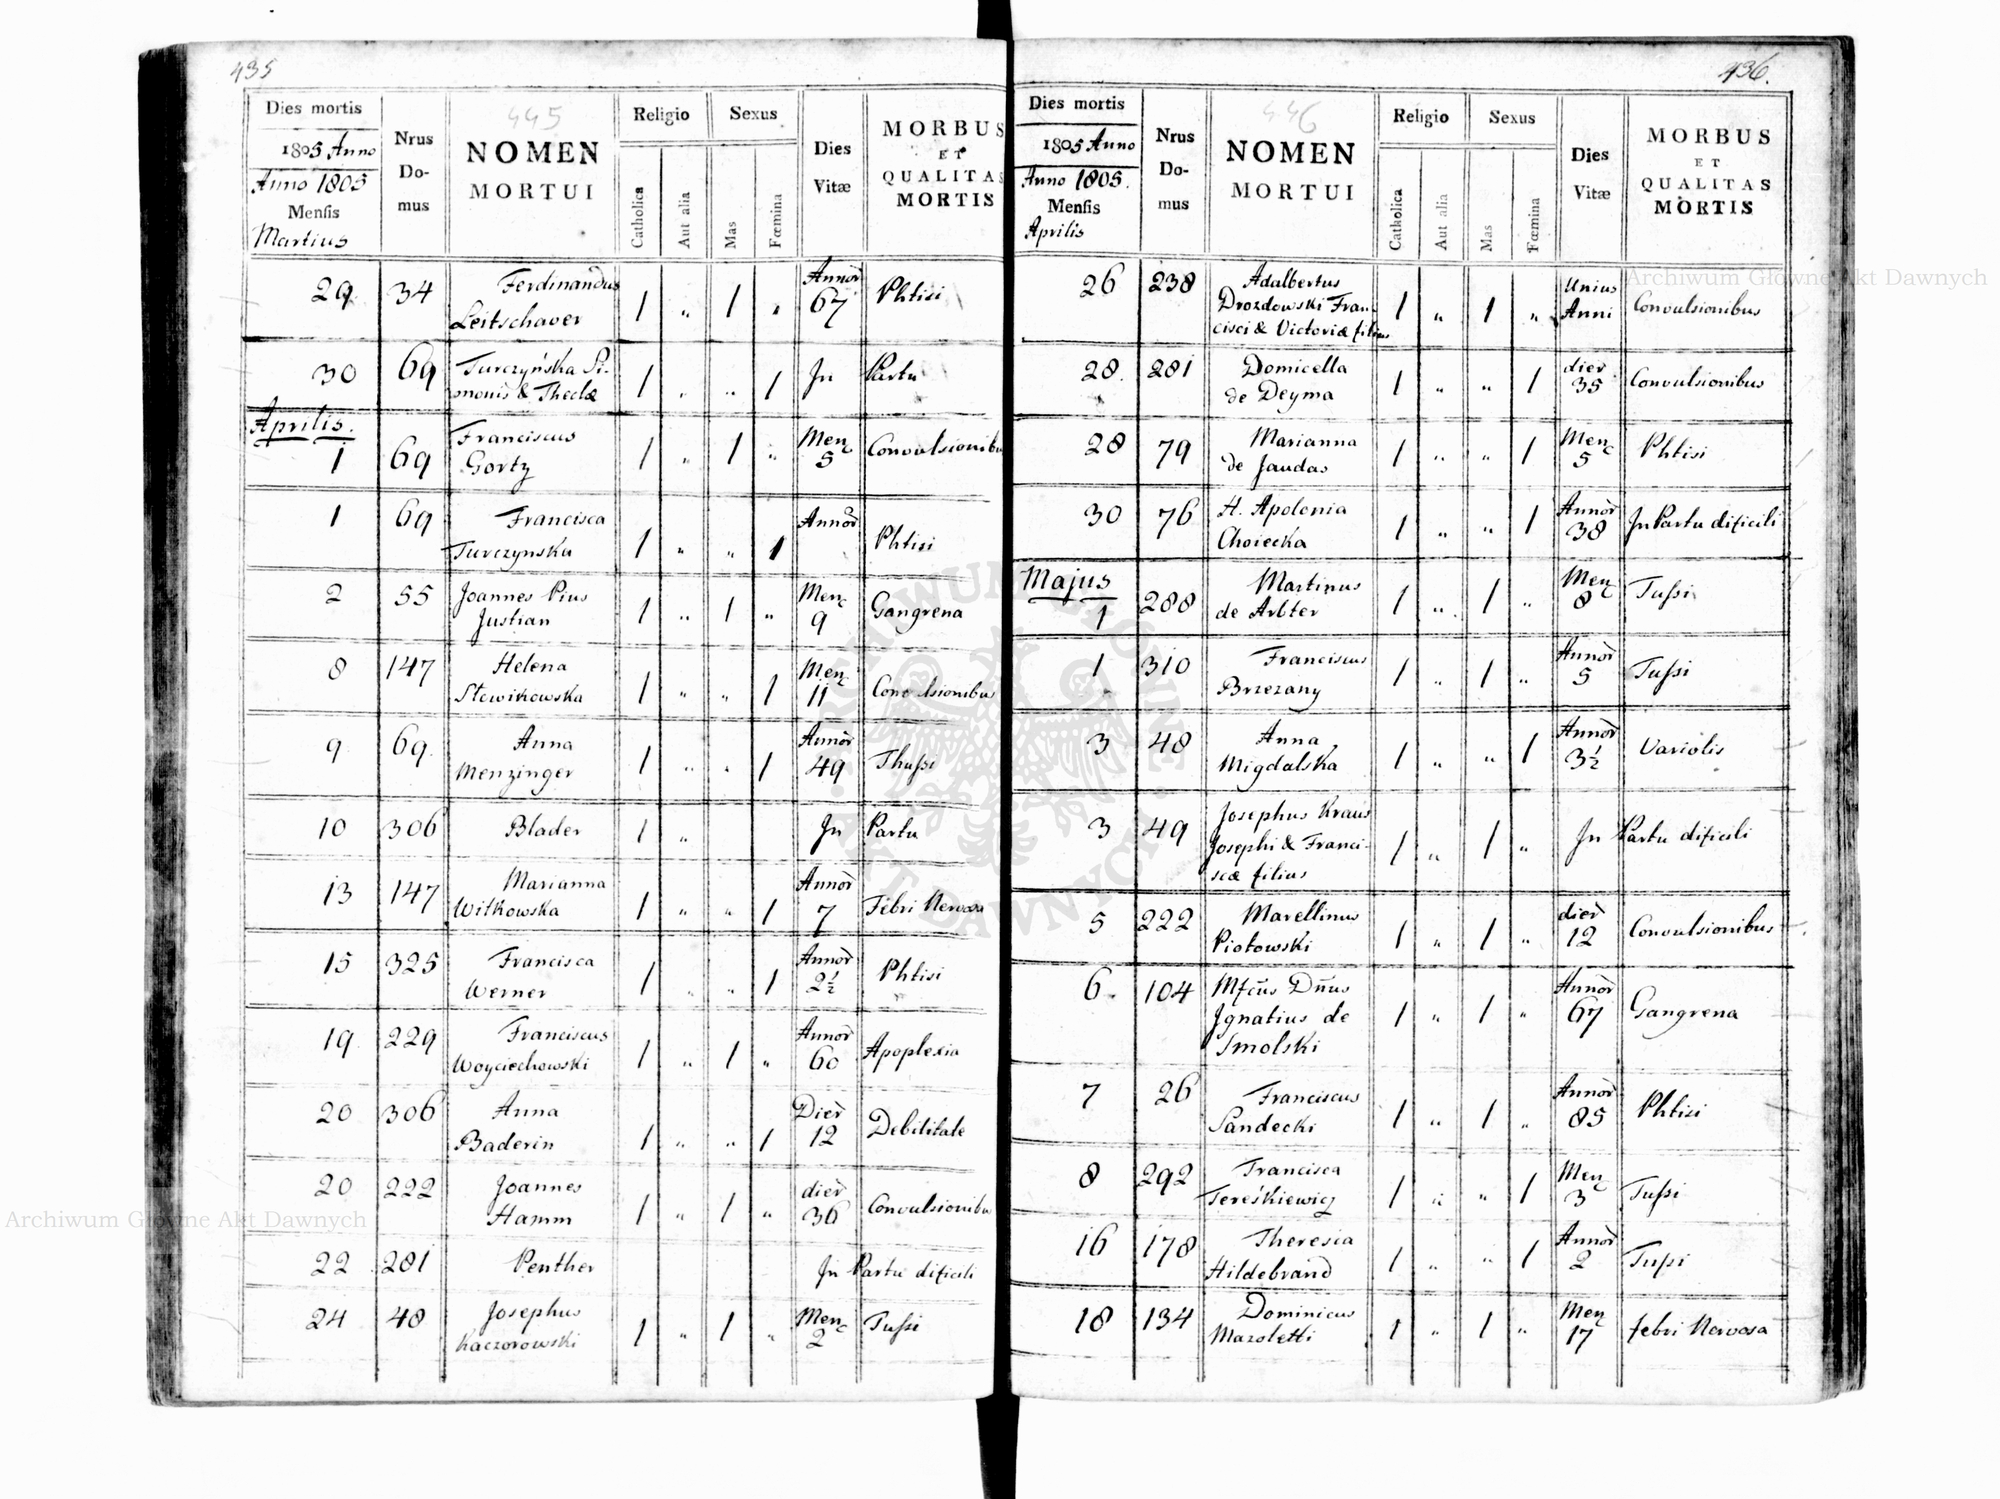 435
Dies mortis
1805 Anno
Anno 1805
Mensis
Martius
Nrus
Do-
mus
445
NOMEN
MORTUI
Religio
Catholica
Aut alia
Sexus
Mas
Fœmina
Dies
Vitæ
MORBUS
ET
QUALITAS
MORTIS
29 34 Ferdinandus
Leitschaver 1 " 1 " Annor
67 Phtisi
30 69 Turczyńska Si-
monis & Theclæ 1 " " 1 Jn Partu
Aprilis.
1 69 Franciscus
Gortz 1 " 1 " Men
5 Convulsionibus
1 69 Francisca
Turczynska 1 " " 1 Annor
Phtisi
2 55 Joannes Pius
Justian 1 " 1 " Men
9 Gangrena
8 147 Helena
1 " " 1 Men
11 Convulsionibus
9 69. Anna
Menzinger 1 " " 1 Annor
49 Thussi
10 306 Blader 1 " Jn Partu
13 147 Marianna
Witkowska 1 " " 1 Annor
7 Febri Nervosa
15 325 Francisca
Werner 1 " " 1 Annor
2½ Phtisi
19 229 Franciscus
Woyciechowski 1 " 1 " Annor
60 Apoplexia
20 306 Anna
Baderin 1 " " 1 Dier
12 Debilitate
20 222 Joannes
Hamm 1 " 1 " dier
36 Convulsionibus
22 281 Penther Jn Partu dificili
24 48 Josephus
Kaczorowski 1 " 1 " Men
2 Tussi
436.
Dies mortis
1805 Anno
Anno 1805.
Mensis
Aprilis
Nrus
Do-
mus
446
NOMEN
MORTUI
Religio
Catholica
Aut alia
Sexus
Mas
Fœmina
Dies
Vitæ
MORBUS
ET
QUALITAS
MORTIS
26 238 Adalbertus
Drozdowski Fran-
cisci & Victoriæ filius 1 " 1 " Unius
Anni Convulsionibus
28. 281 Domicella
de Deyma 1 " " 1 dier
35 Convulsionibus
28 79 Marianna
de Jaudas 1 " " 1 Men
5 Phtisi
30 76 H. Apolonia
Choiecka 1 " " 1 Annor
38 Jn Partu dificili
Majus
1 288 Martinus
de Arbter 1 " 1 " Men
8 Tussi
1 310 Franciscus
Brzezany 1 " 1 " Annor
5 Tussi
3 48 Anna
Migdalska 1 " " 1 Annor
3½ Variolis
3 49 Josephus Kraus
Josephi & Franci-
scæ filius 1 " 1 " Jn Partu dificili
5 222 Marellinus
Piotowski 1 " 1 " dier
12 Convulsionibus
6. 104 Dnus
Jgnatius de
Smolski 1 " 1 " Annor
67 Gangrena
7 26 Franciscus
Sandecki 1 " 1 " Annor
85 Phtisi
8 292 Francisca
Tereśkiewicz 1 " " 1 Men
3 Tussi
16 178 Theresia
Hildebrand 1 " " 1 Annor
2 Tussi
18 134 Dominicus
Mazoletti 1 " 1 " Men
17 febri Nervosa
Archiwum Główne Akt Dawnych
Archiwum Główne Akt Dawnych
ARCHIWUM GŁÓWNE AKT DAWNYCH